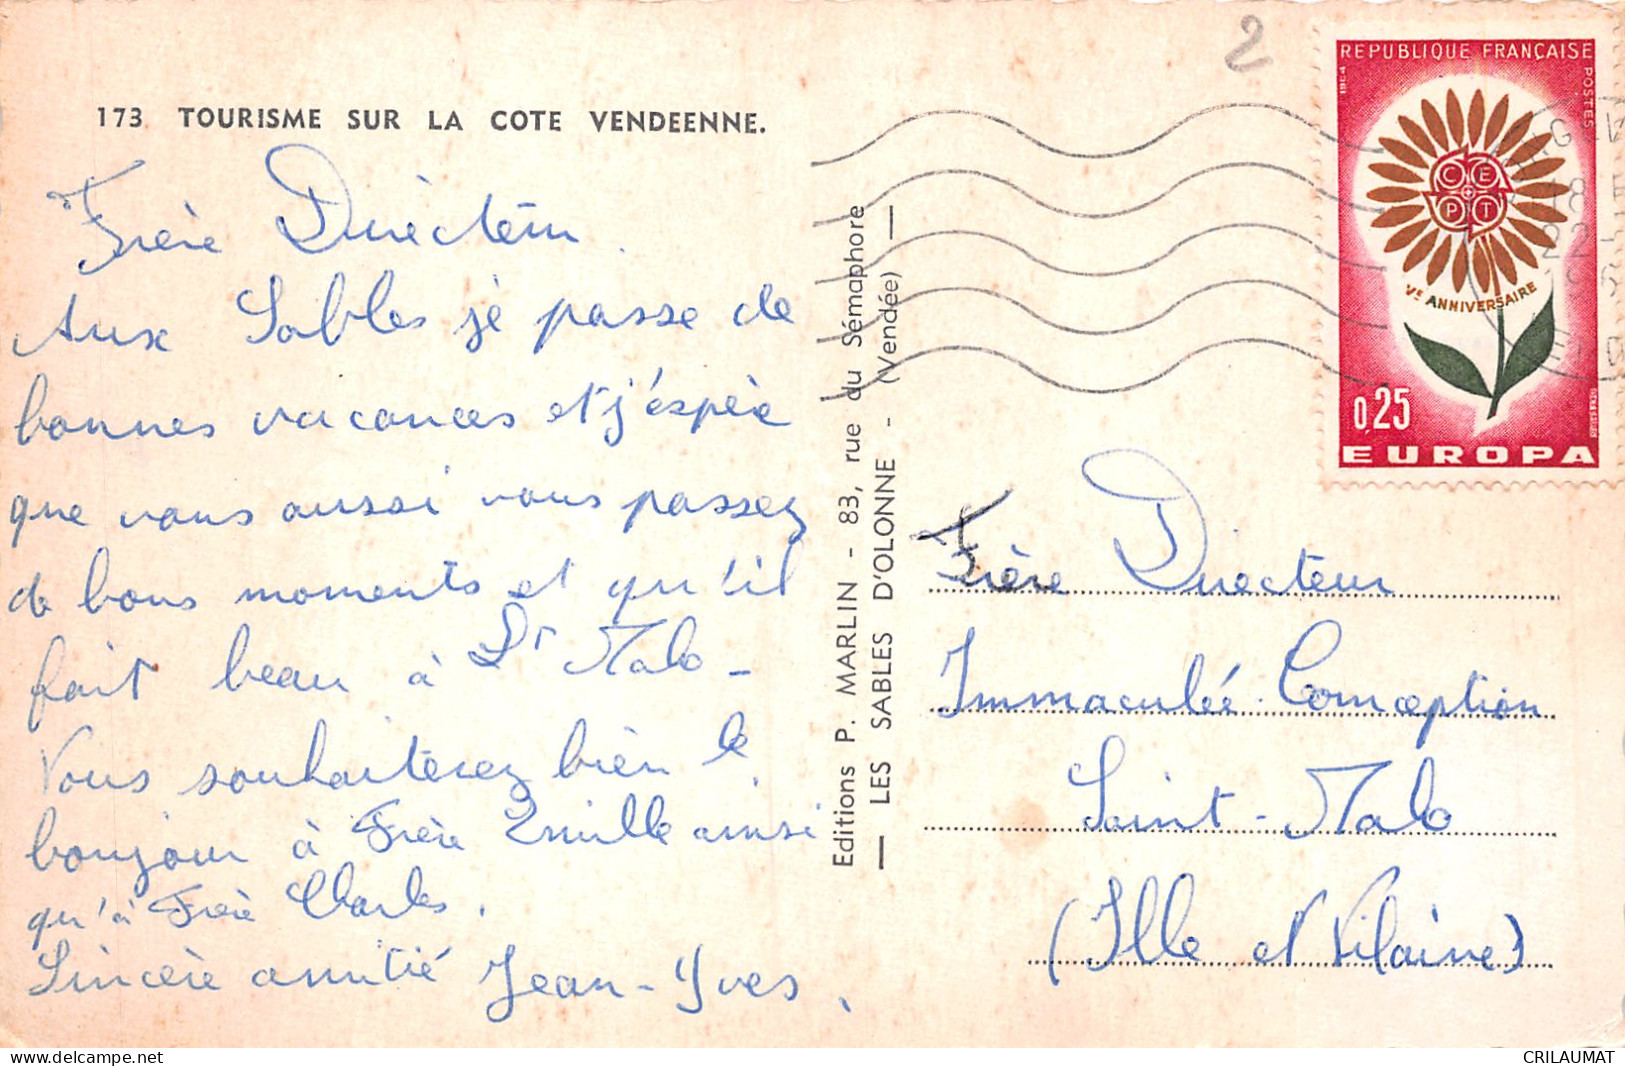 2
173 TOURISME SUR LA COTE VENDEENNE.
Frère Directeur
Aux Sables je passe de
bonnes vacances et j'éspère
que vous aussi vous passez
de bons moments et qu'il
fait beau à St Malo -
Vous souhaiterez bien le
bonjour à Frère Emille ainsi
qu'à Frère Charles.
Sincère amitié Jean-Yves.
Editions P. MARLIN - 83, rue du Sémaphore
— LES SABLES D'OLONNE - (Vendée) —
REPUBLIQUE FRANÇAISE
POSTES
1964
CEPT
Ve ANNIVERSAIRE
0,25
EUROPA
18
22-
196
Frère Directeur
Immaculée-Conception
Saint-Malo
(Ille et Vilaine)
CRILAUMAT